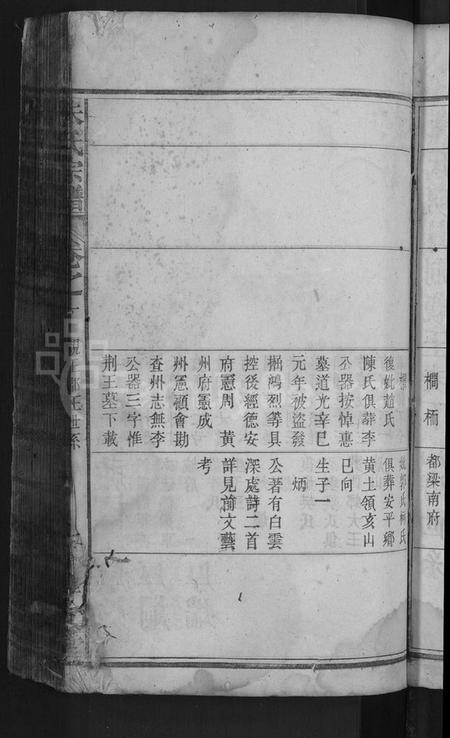 桶
都梁南府
後妣趙氏
陳氏俱葬李
公器按悼惠
墓道光辛巳
元年被盜發
搠鴻烈等具
控後經德安
府憲周 黃
州府憲成
州憲顧會勘
査州志無李
公器三字惟
荆王墓下載
俱葬安平鄉
黃土領亥山
巳向
生子一
炳
公著有白雲
深處詩二首
詳見前文藝
考
氏宗譜
卷之一